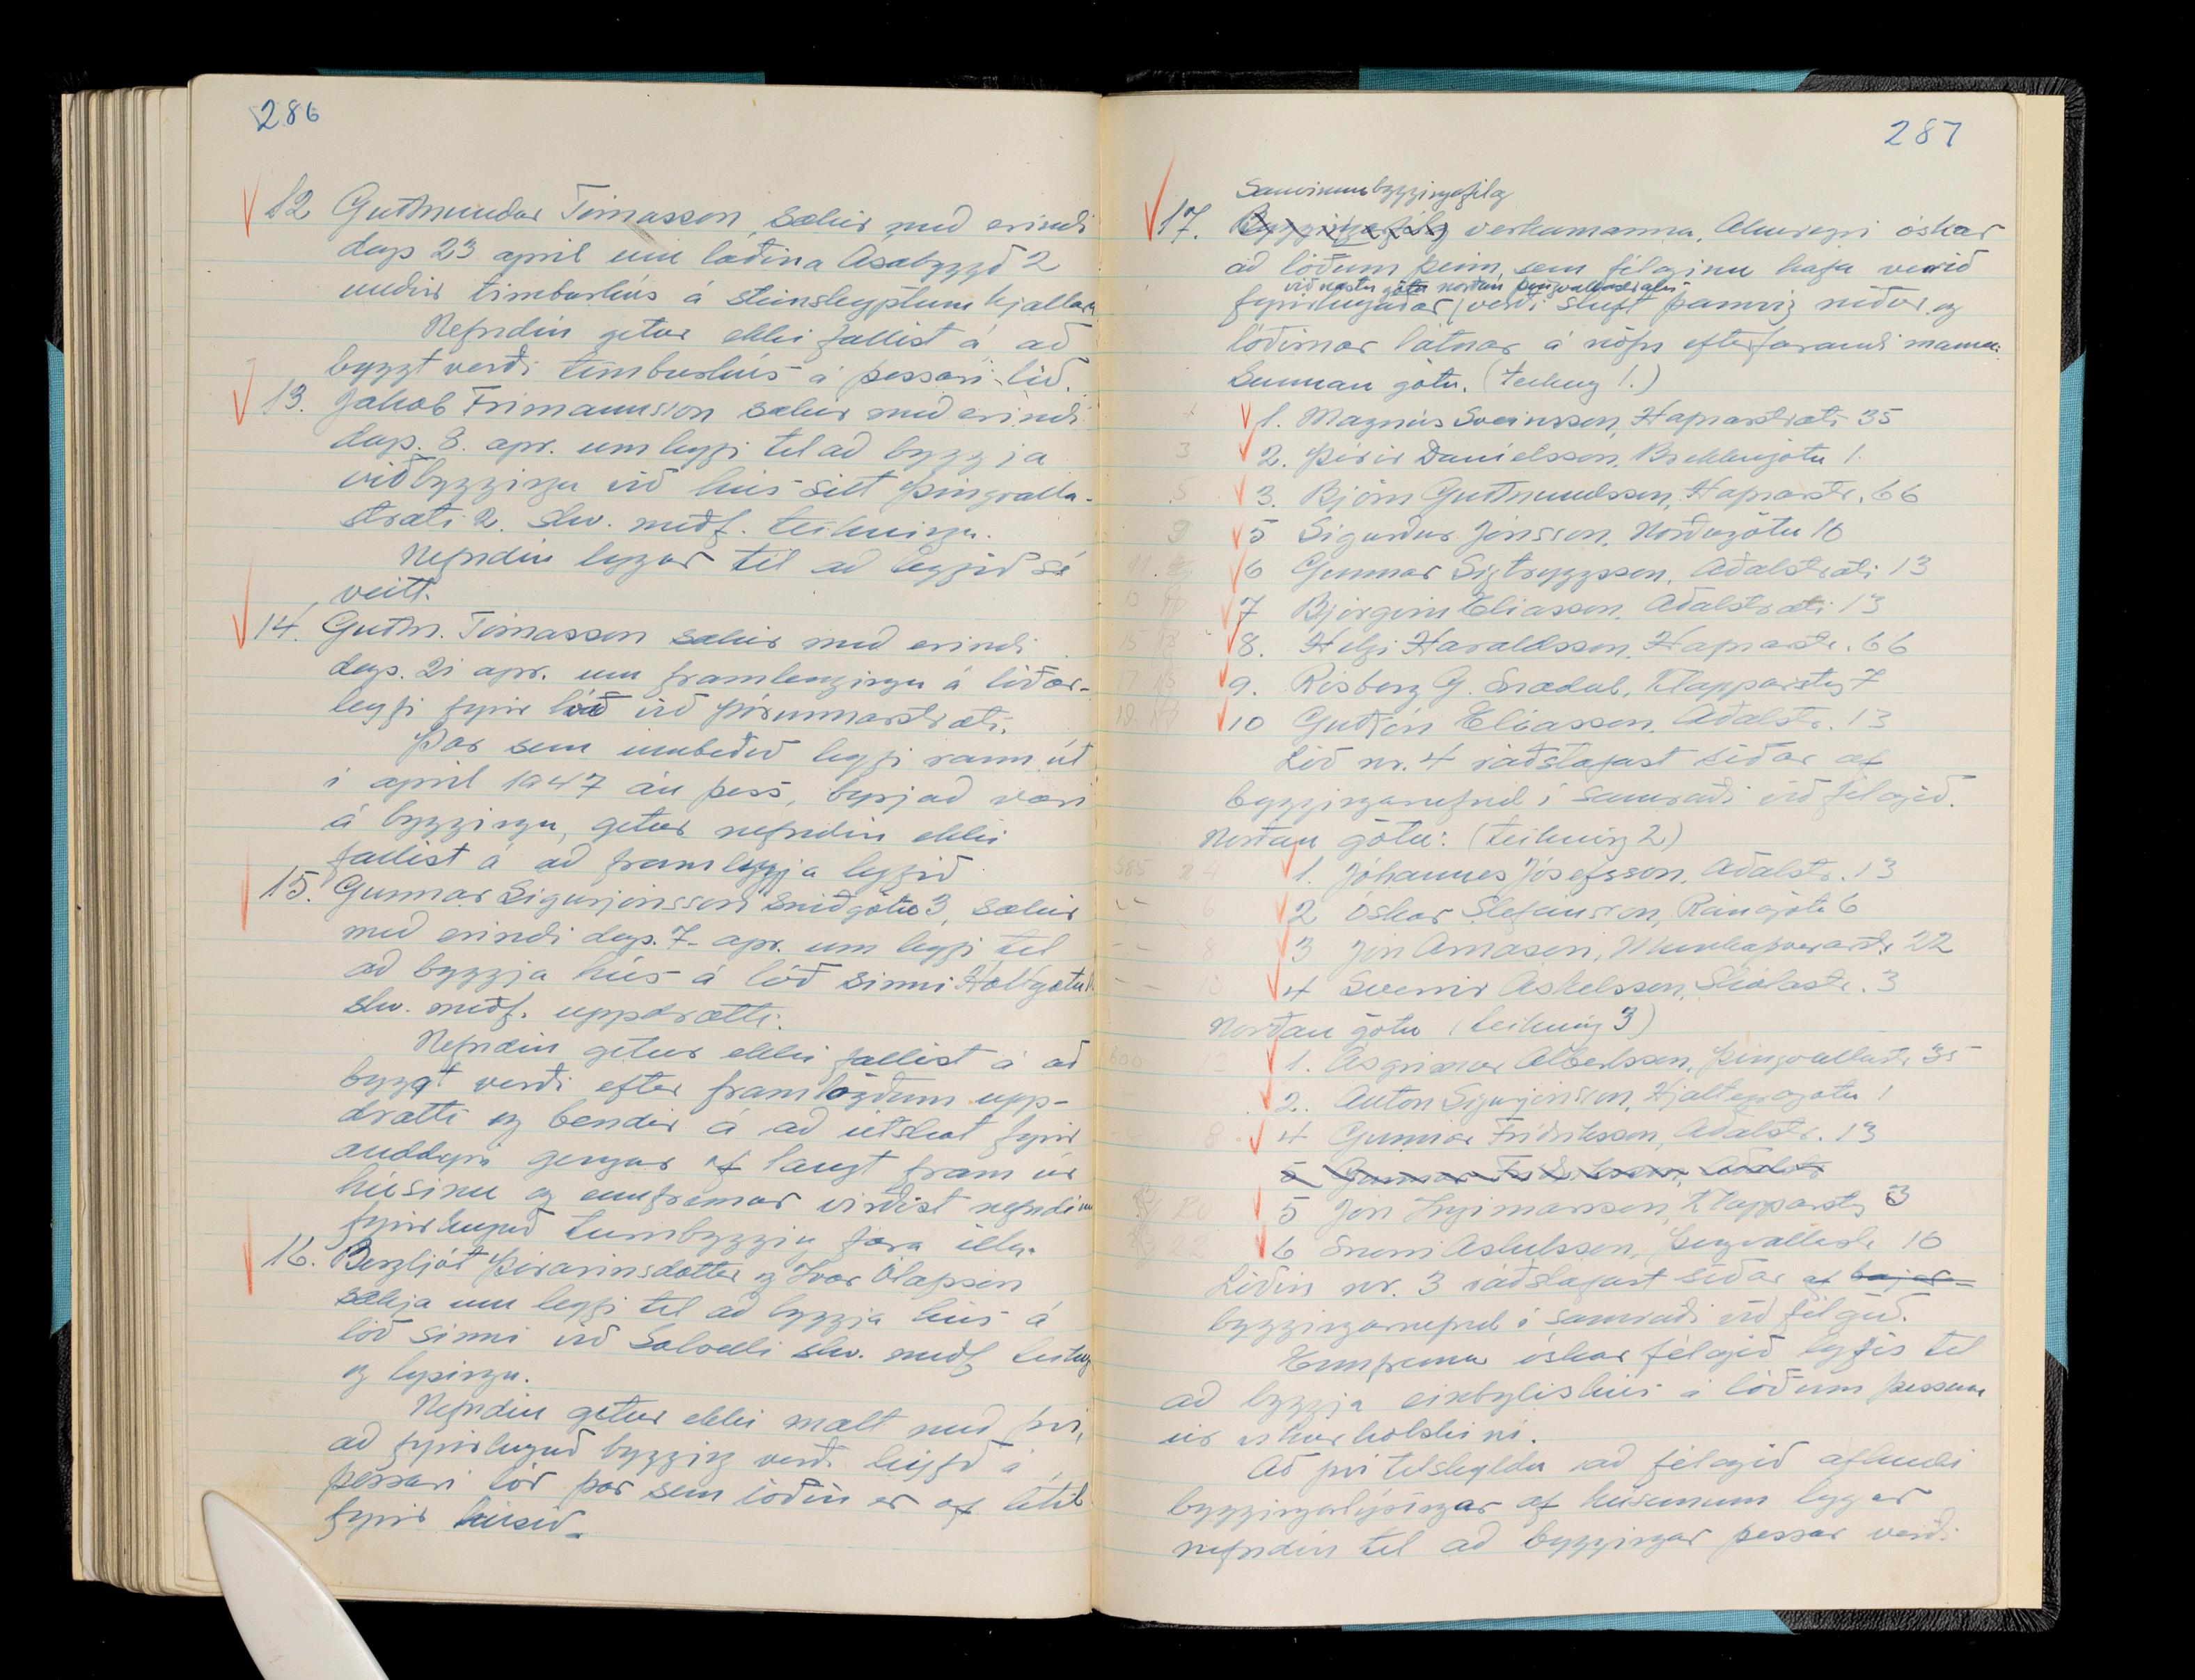 286
12. Guðmundur Tómasson, sækir með erindi
dags 23 april um lóðina Ásabyggð 2
undir timburhús á steinsteyptum kjallara
Nefndin getur ekki fallist á að
byggt verði timburhús á þessari lóð.
13. Jakob Frímannsson sækir með erindi
dags. 8. apr. um leyfi til að byggja
viðbyggingu við hús sitt Þingvalla-
stræti 2. skv. meðf. teikningu.
Nefndin leggur til að leyfið sé
veitt.
14. Guðm. Tómasson sækir með erindi
dags. 21 apr. um framlengingu á lóðar-
leyfi fyrir lóð við Þórunnarstræti.
Þar sem umbeðið leyfi rann út
í april 1947 án þess, byrjað væri
á byggingu, getur nefndin ekki
fallist á að framlengja leyfið
15. Gunnar Sigurjónsson Sniðgötu 3, sækir
með erindi dags. 7. apr. um leyfi til
að byggja hús á lóð sinni Holtagötu
skv. meðf. uppdrætti.
Nefndin getur ekki fallist á að
byggt verði eftir framlögðum upp-
drætti og bendir á að útskot fyrir
anddyri gengur of langt fram úr
húsinu og ennfremur virðist nefndinni
fyrirhuguð turnbygging fara illa.
16. Bergljót Þórarinsdóttir og Ivar Ólafsson
sækja um leyfi til að byggja hús á
lóð sinni við Sólvelli skv. meðf teikng
og lýsingu.
Nefndin getur ekki mælt með því,
að fyrirhuguð bygging verði leyfð á
þessari lóð þar sem lóðin er of lítil
fyrir húsið.
287
Samvinnubyggingafélag
17. Byggingafélag verkamanna, Akureyri óskar
að lóðum þeim, sem félaginu hafa verið
við næstu götu norðan Þingvallastrætis
fyrirhugaðar, verði skift þannig niður og
lóðirnar látnar á nöfn eftirfarandi manna:
Sunnan götu. (teikng 1.)
1. Magnús Sveinsson, Hafnarstræti 35
3 2. Þórir Daníelsson, Brekkugötu 1.
5 3. Björn Guðmundsson, Hafnarstr. 66
9 5 Sigurður Jónsson, Norðurgötu 16
11 6 Gunnar Sigtryggsson, Aðalstræti 13
13 7 Björgvin Elíasson, Aðalstræti 13
15 8. Helgi Haraldsson, Hafnarstr. 66
17 9. Risberg G. Snædal, Klapparstíg 7
19 10 Guðjón Elíasson, Aðalstr. 13
Lóð nr. 4 ráðstafast síðar af
byggingarnefnd í samráði við félagið.
Norðan götu: (teikning 2)
585 4 1. Jóhannes Jósefsson, Aðalstr. 13
-- 6 2 Óskar Stefánsson, Ránargötu 6
-- 8 3 Jón Árnason, Munkaþverárstr. 22
-- 10 4 Sverrir Áskelsson, Skólastr. 3
Norðan götu (teikning 3)
600 12 1. Ásgrímur Albertsson, Þingvallastr. 35
2. Anton Sigurjónsson, Hjalteyrargötu 1
8 4 Gunnar Friðriksson, Aðalstr. 13
5 Gunnar Friðriksson, Aðalstr
20 5 Jón Ingimarsson, Klapparstíg 3
22 6 Snorri Áskelsson, Þingvallastr 16
Lóðin nr. 3 ráðstafast síðar af bæjar-
byggingarnefnd í samráði við félagið.
Ennfremur óskar félagið leyfis til
að byggja einbýlishús á lóðum þessum
úr
Að því tilskyldu að félagið afhendi
byggingarlýsingar af húsunum leggur
nefndin til að byggingar þessar verði